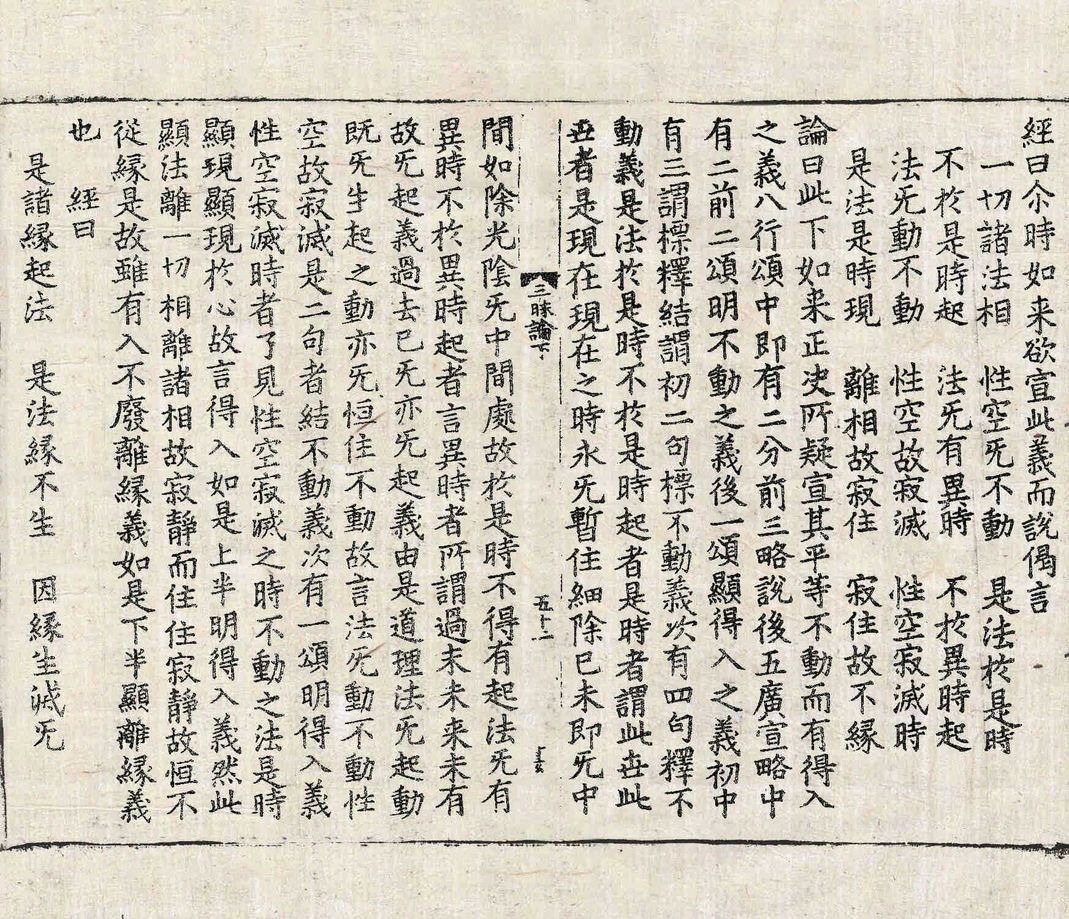 經曰尒時如来欲宣此義而說偈言
一切諸法相 性空旡不動 是法於是時
不於是時起 法旡有異時 不於異時起
法旡動不動 性空故寂滅 性空寂滅時
是法是時現 離相故寂住 寂住故不緣
論曰此下如来正决所疑宣其平等不動而有得入
之義八行頌中即有二分前三略說後五廣宣略中
有二前二頌明不動之義後一頌顯得入之義初中
有三謂標釋結謂初二句標不動義次有四句釋不
動義是法於是時不於是時起者是時者謂此丗此
丗者是現在現在之時永旡暫住細除已未即旡中
三昧論下 五十二
間如除光陰旡中間處故於是時不得有起法旡有
異時不於異時起者言異時者所謂過未未来未有
故旡起義過去已旡亦旡起義由是道理法旡起動
既旡生起之動亦旡恒住不動故言法旡動不動性
空故寂滅是二句者結不動義次有一頌明得入義
性空寂滅時者了見性空寂滅之時不動之法是時
顯現顯現於心故言得入如是上半明得入義然此
顯法離一切相離諸相故寂靜而住住寂靜故恒不
從緣是故雖有入不廢離緣義如是下半顯離緣義
也 經曰
是諸緣起法 是法緣不生 因緣生滅旡